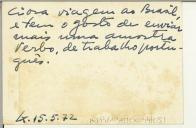 viagem ao Brasil,
e tem o gosto de enviar
mais uma amostra
Verbo, de trabalho portu-
guês.
k. 15.5.72